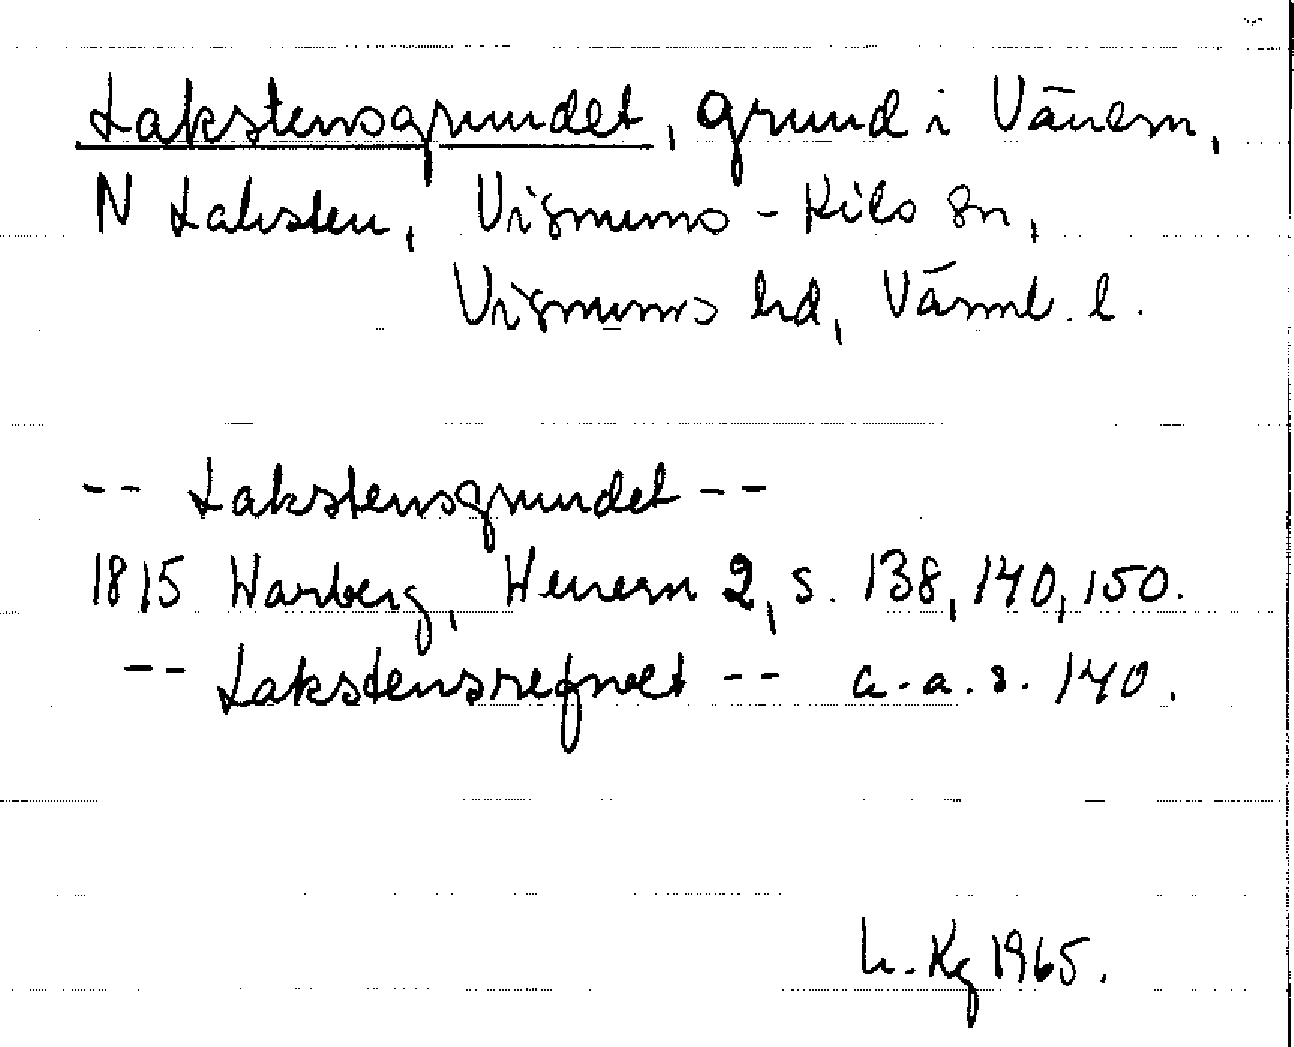 Lakstensgrundet, grund i Vänern,
N Laksten, Visnums-Kils sn,
Visnums hd, Värml. l.
-- Lakstensgrundet --
1815 Warberg, Wenern 2, s. 138, 140, 150.
-- Lakstensrefvet -- a.a. s. 140.
L. Kg 1965.